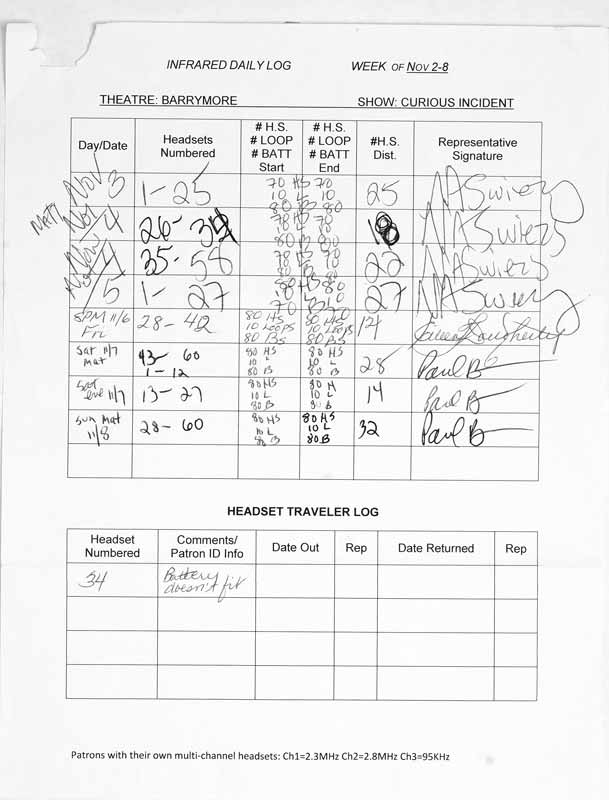 INFRARED DAILY LOG WEEK OF NOV 2-8
THEATRE: BARRYMORE SHOW: CURIOUS INCIDENT
Day/Date Headsets Numbered # H.S. # LOOP # BATT Start # H.S. # LOOP # BATT End #H.S. Dist. Representative Signature
Nov 3 1-25 70 HS 70 25
10 L 10
80 B 80
Mat Nov 4 26- 70 HS 70 18
10 L 10
80 B 80
Nov 4 35-58 70 HS 70 22
80 B 80
Nov 5 1-27 27
8PM 11/6 Fri 28-42 80 HS 10 LOOPS 80 BS 80 HS 10 LOOPS 80 BS 14
Sat 11/7 mat 43-60 1-12 80 HS 10 L 80 B 80 HS 10 L 80 B 28 Paul B
Sat Eve 11/7 13-27 80 HS 10 L 80 B 80 H 10 L 80 B 14 Paul B
Sun Mat 11/8 28-60 80 HS 10 L 80 B 80 HS 10 L 80 B 32 Paul B
HEADSET TRAVELER LOG
Headset Numbered Comments/ Patron ID Info Date Out Rep Date Returned Rep
34 Battery doesn't fit
Patrons with their own multi-channel headsets: Ch1=2.3MHz Ch2=2.8MHz Ch3=95KHz